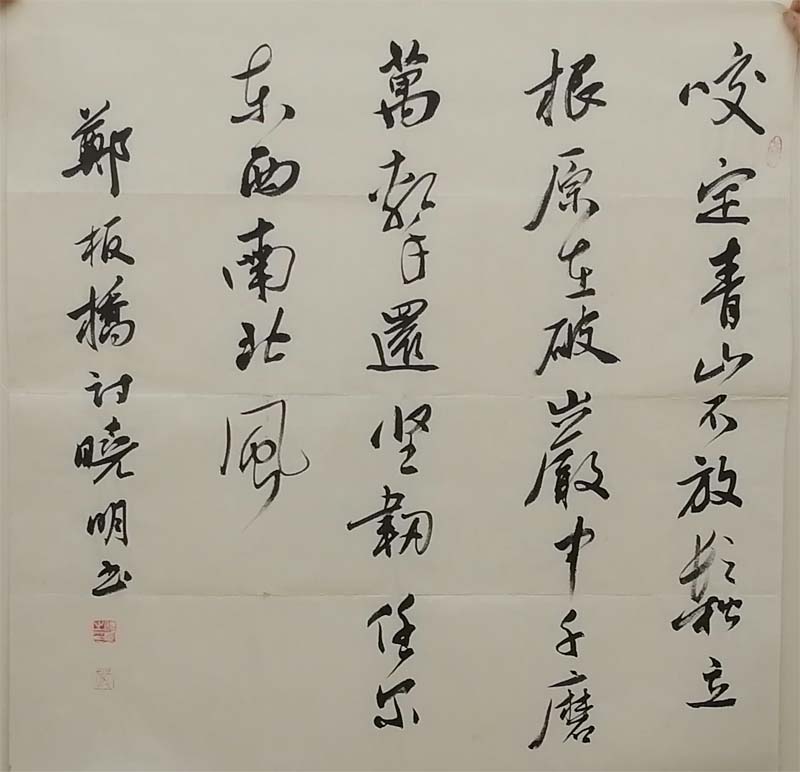 咬定青山不放鬆立
根原在破巖中千磨
萬擊還坚韌任尔
东西南北風
鄭板橋詩曉明书